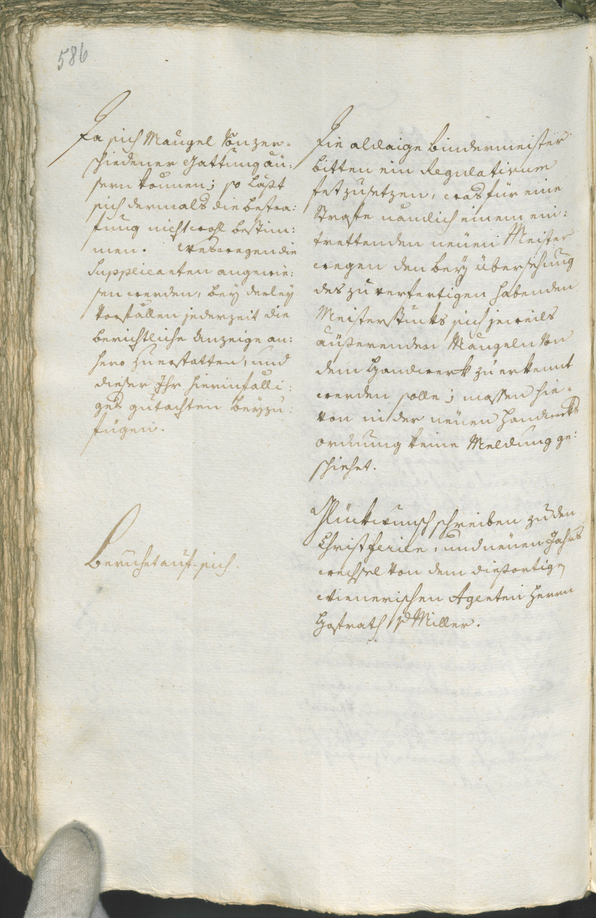 586
Da sich Mängel von zer-
schiedener Gattung äu:
sern können; so läßt
sich dermals die bestra:
fung nicht wohl bestim:
men. Weswegen die
Supplicanten angewie:
sen werden, bey derley
Vorfällen jederzeit die
berichtliche Anzeige an:
hero zu erstatten, und
dieser Ihr hierinfälli:
ges gutachten beyzu:
fügen.
Beruhet auf sich.
Die aldaige Bindermeister
bitten ein Regulativum
festzusetzen, was für eine
Strafe nämlich einem ein:
trettenden neuen Meister
wegen den bey übersehung
des zu verfertigen habenden
Meisterstücks sich jeweils
äußerenden Mängeln von
dem Handwerk zuerkennt
werden solle; massen hie-
von in der neuen Handwerks
ordnung keine Meldung ge:
schiehet.
Glückwunschschreiben zu den
Christferien, und neuen Jahrs
wechsel von dem diesortigen
wienerischen Agenten Herrn
Hofrath Miller.